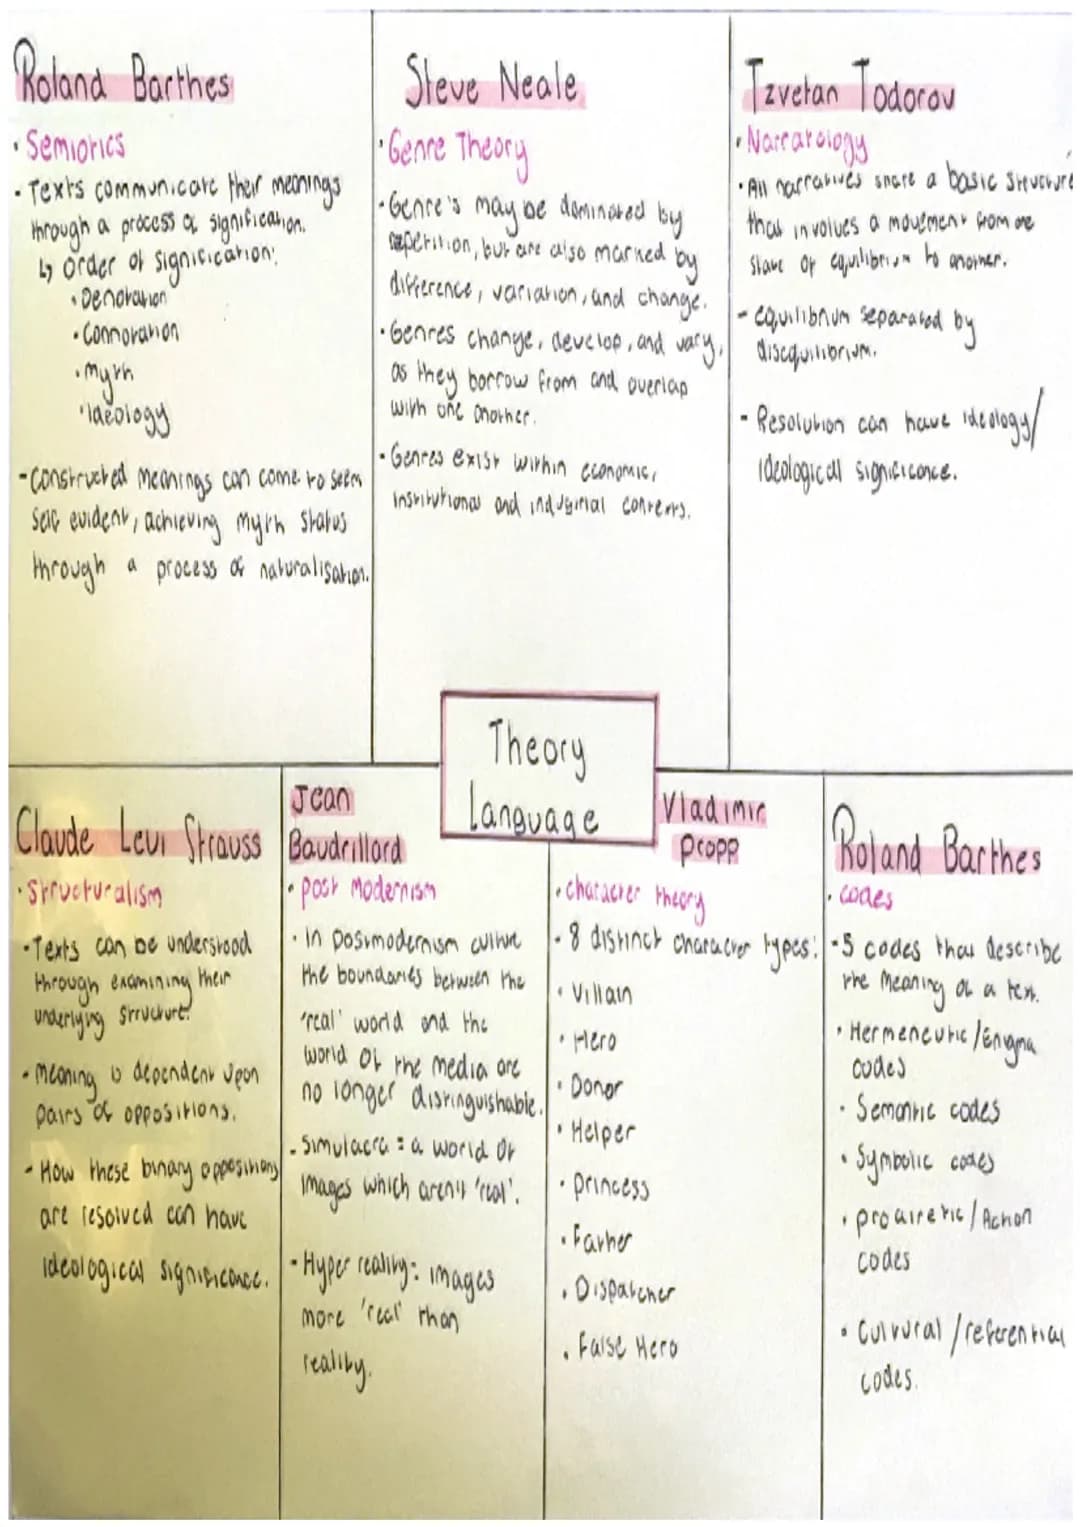 Roland Barthes
• Semiotics
- Texts communicate their meanings
through a process of signification.
↳ order of signification:
• Denotation
• Connotation
• myth
• Ideology
- constructed meanings can come to seem
self evident, achieving myth status
through a process of naturalisation.
Steve Neale
• Genre Theory
• Genre's may be dominated by
repetition, but are also marked by
difference, variation, and change.
• Genres change, develop, and vary,
as they borrow from and overlap
with one another.
• Genres exist within economic,
institutional and industrial contexts.
Tzvetan Todorov
• Narratology
• All narratives share a basic structure
that involves a movement from one
state of equilibrium to another.
- equilibrium separated by
disequilibrium.
- Resolution can have ideology/
ideological significance.
Theory
Language
Claude Levi Strauss
• Structuralism
• Texts can be understood
through examining their
underlying structure.
• Meaning is dependent upon
pairs of oppositions.
- How these binary oppositions
are resolved can have
ideological significance.
Jean
Baudrillard
• post Modernism
• In postmodernism culture
the boundaries between the
'real' world and the
world of the media are
no longer distinguishable.
- Simulacra = a world of
images which aren't 'real'.
- Hyper reality: images
more 'real' than
reality.
Vladimir
Propp
• character theory
- 8 distinct character types:
• Villain
• Hero
• Donor
• Helper
• princess
• Father
• Dispatcher
• False Hero
Roland Barthes
• codes
- 5 codes that describe
the meaning of a text.
• Hermeneutic/Enigma
codes
• Semantic codes
• Symbolic codes
• proairetic/Action
codes
• Cultural/referential
codes.